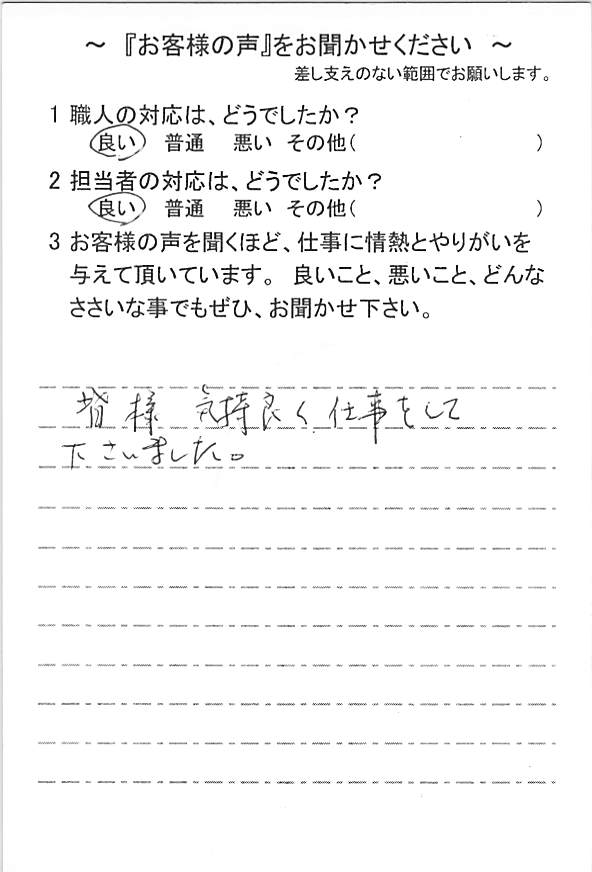 ～ 『お客様の声』をお聞かせください ～
差し支えのない範囲でお願いします。
1 職人の対応は、どうでしたか？
良い 普通 悪い その他( )
2 担当者の対応は、どうでしたか？
良い 普通 悪い その他( )
3 お客様の声を聞くほど、仕事に情熱とやりがいを
与えて頂いています。 良いこと、悪いこと、どんな
ささいな事でもぜひ、お聞かせ下さい。
皆様 気持良く仕事をして
下さいました。